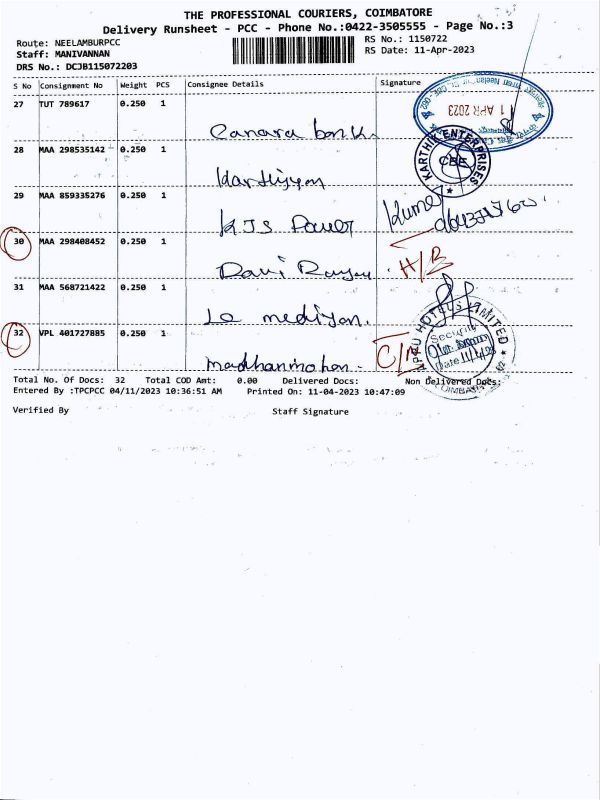 THE PROFESSIONAL COURIERS, COIMBATORE
Delivery Runsheet - PCC - Phone No.:0422-3505555 - Page No.:3
Route: NEELAMBURPCC
RS No.: 1150722
Staff: MANIVANNAN
RS Date: 11-Apr-2023
DRS No.: DCJB115072203
S No Consignment No Weight PCS Consignee Details Signature
27 TUT 789617 0.250 1
11 APR 2023
Canara bank.
KARTHIK ENTERPRISES
CBE
28 MAA 298535142 0.250 1
Karthiyan
29 MAA 859335276 0.250 1
Kumar
KJS Power
30 MAA 298408452 0.250 1
H/B
31 MAA 568721422 0.250 1
Le meridian.
HOTELS LIMITED
Security
Date 11/4/23
32 VPL 401727885 0.250 1
madhanmohan.
Total No. Of Docs: 32 Total COD Amt: 0.00 Delivered Docs: Non Delivered Docs:
Entered By :TPCPCC 04/11/2023 10:36:51 AM Printed On: 11-04-2023 10:47:09
Verified By Staff Signature